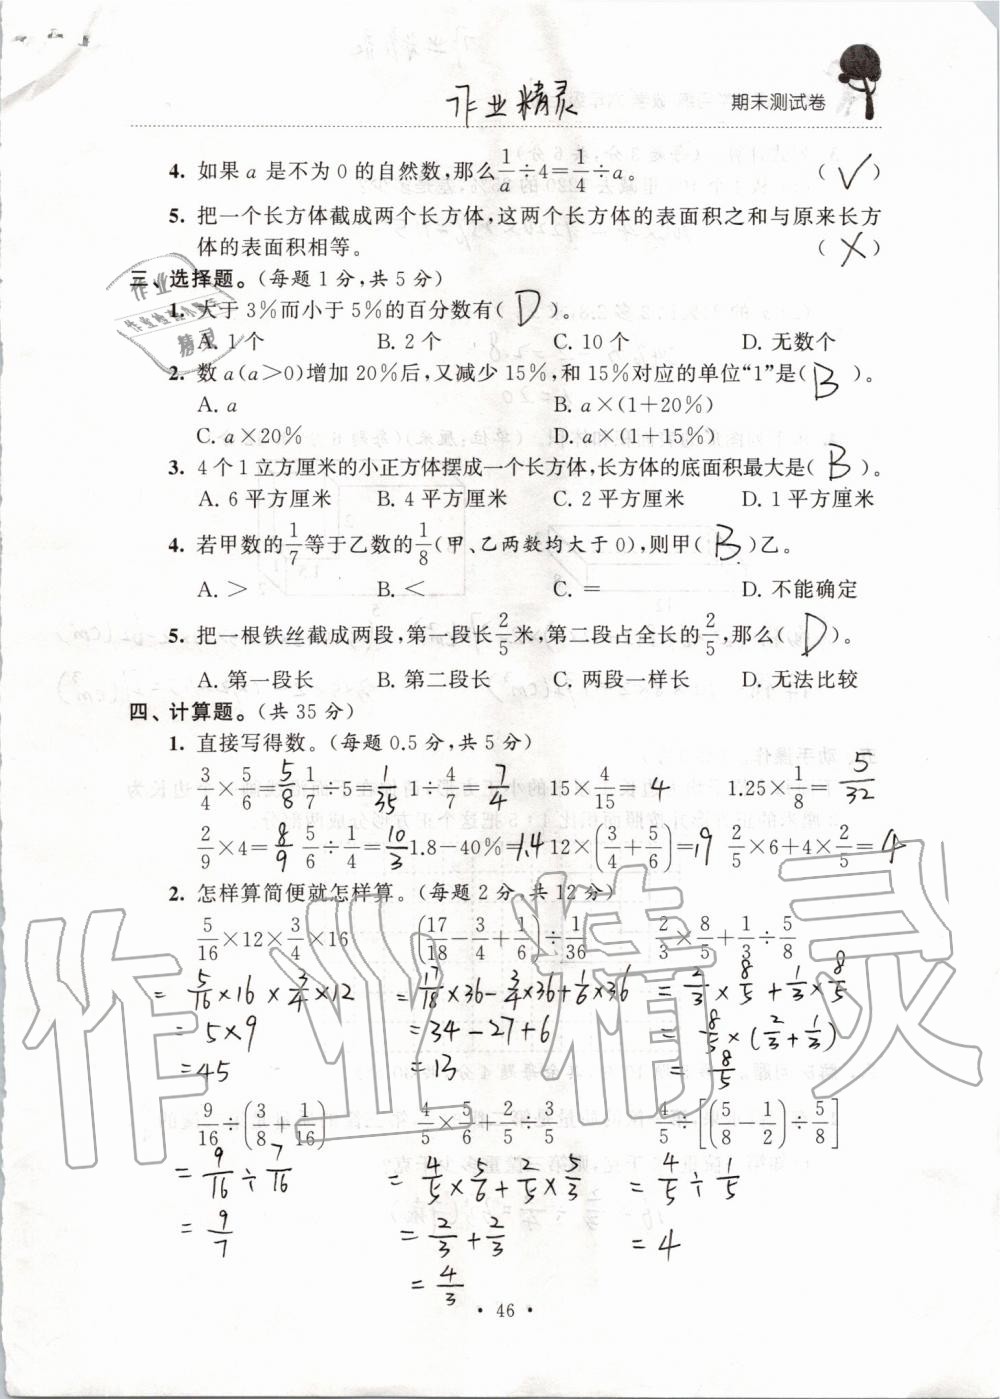 作业精灵
期末测试卷
4. 如果 a 是不为 0 的自然数,那么 1/a ÷4= 1/4 ÷a。 ( √ )
5. 把一个长方体截成两个长方体,这两个长方体的表面积之和与原来长方
体的表面积相等。 ( × )
三、选择题。(每题 1 分,共 5 分)
1. 大于 3%而小于 5%的百分数有( D )。
A. 1 个 B. 2 个 C. 10 个 D. 无数个
2. 数 a(a>0)增加 20%后,又减少 15%,和 15%对应的单位“1”是( B )。
A. a B. a×(1+20%)
C. a×20% D. a×(1+15%)
3. 4 个 1 立方厘米的小正方体摆成一个长方体,长方体的底面积最大是( B )。
A. 6 平方厘米 B. 4 平方厘米 C. 2 平方厘米 D. 1 平方厘米
4. 若甲数的 1/7 等于乙数的 1/8 (甲、乙两数均大于 0),则甲( B )乙。
A. > B. < C. = D. 不能确定
5. 把一根铁丝截成两段,第一段长 2/5 米,第二段占全长的 2/5 ,那么( D )。
A. 第一段长 B. 第二段长 C. 两段一样长 D. 无法比较
四、计算题。(共 35 分)
1. 直接写得数。(每题 0.5 分,共 5 分)
3/4 × 5/6 = 5/8 1/7 ÷5= 1/35 1÷ 4/7 = 7/4 15× 4/15 = 4 1.25× 1/8 = 5/32
2/9 ×4= 8/9 5/6 ÷ 1/4 = 10/3 1.8-40%=1.4 12×(3/4 + 5/6)=19 2/5 ×6+4× 2/5 = 4
2. 怎样算简便就怎样算。(每题 2 分,共 12 分)
5/16 ×12× 3/4 ×16 (17/18 - 3/4 + 1/6)÷ 1/36 2/3 × 8/5 + 1/3 ÷ 5/8
= 5/16 ×16 × 3/4 ×12 = 17/18 ×36- 3/4 ×36+ 1/6 ×36 = 2/3 × 8/5 + 1/3 × 8/5
= 5×9 = 34-27+6 = 8/5 ×( 2/3 + 1/3 )
= 45 = 13 = 8/5
9/16 ÷(3/8 + 1/16) 4/5 × 5/6 + 2/5 ÷ 3/5 4/5 ÷[(5/8 - 1/2)÷ 5/8]
= 9/16 ÷ 7/16 = 4/5 × 5/6 + 2/5 × 5/3 = 4/5 ÷ 1/5
= 9/7 = 2/3 + 2/3 = 4
= 4/3
· 46 ·